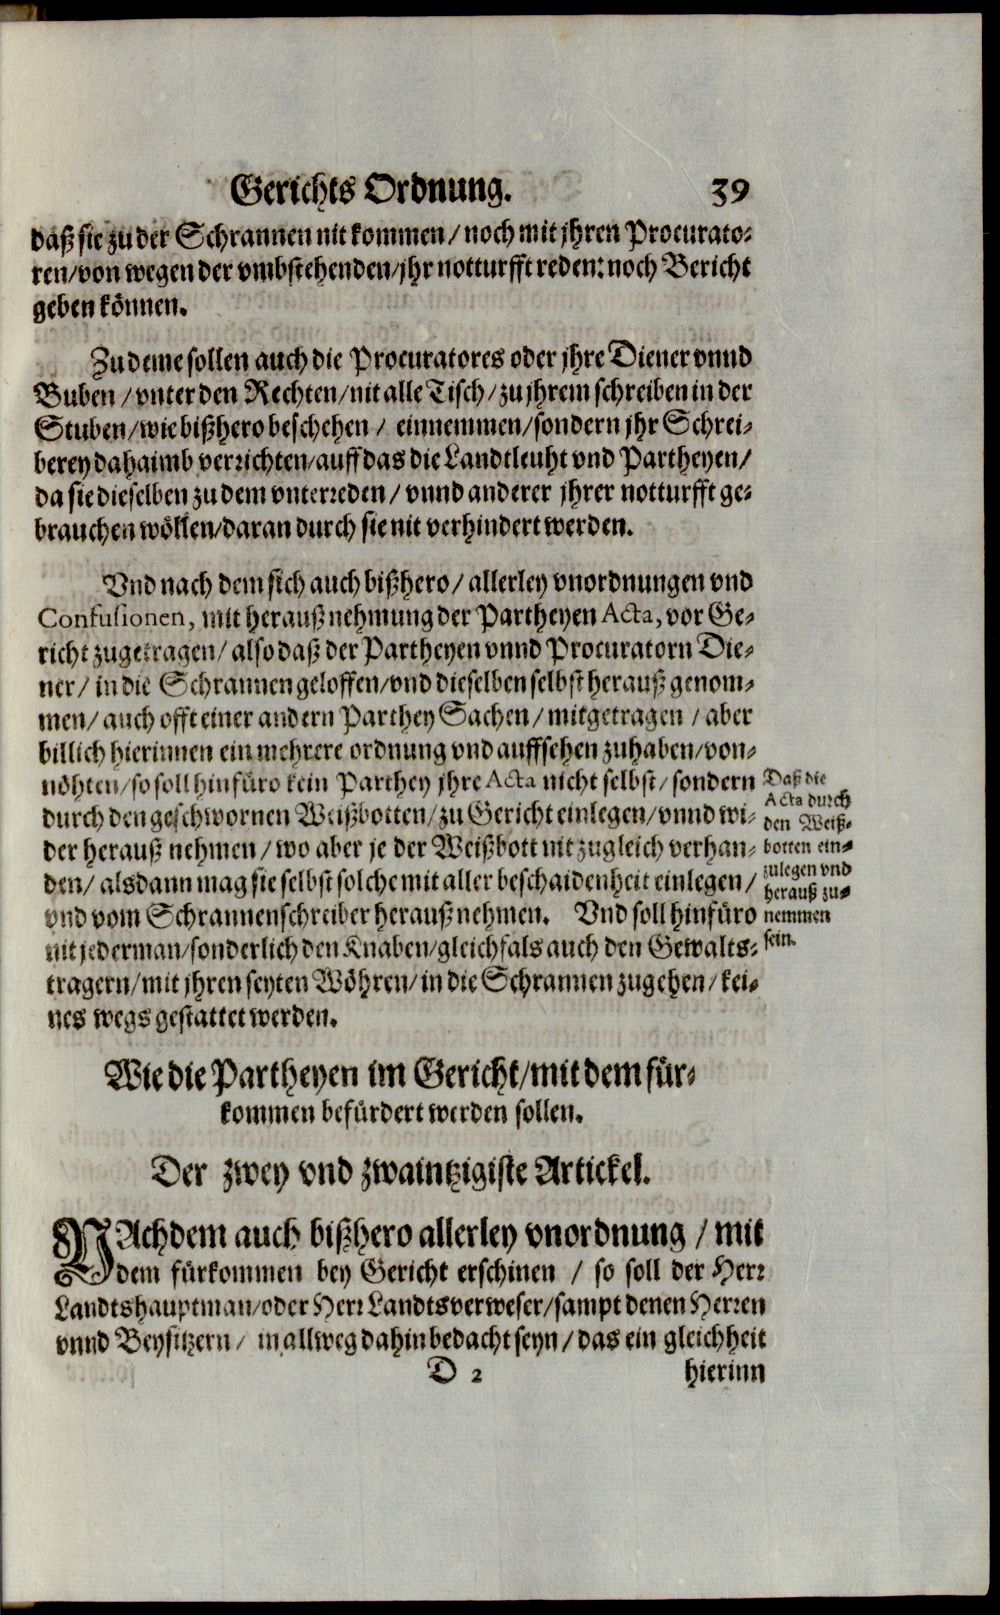 Gerichts Ordnung. 39
daß sie zu der Schrannen nit kommen / noch mit jhren Procurato-
ren / von wegen der vmbstehenden / jhr notturfft reden: noch Bericht
geben können.
Zu deme sollen auch die Procuratores oder jhre Diener vnnd
Buben / vnter den Rechten / nit alle Tisch / zu jhrem schreiben in der
Stuben / wie bißhero beschehen / einnemmen / sondern jhr Schrei-
berey dahaimb verrichten / auff das die Landtleuht vnd Partheyen /
da sie dieselben zu dem vnterreden / vnnd anderer jhrer notturfft ge-
brauchen wöllen / daran durch sie nit verhindert werden.
Vnd nach dem sich auch bißhero / allerley vnordnungen vnd
Confusionen, mit herauß nehmung der Partheyen Acta, vor Ge-
richt zugetragen / also daß der Partheyen vnnd Procuratorn Die-
ner / in die Schrannen geloffen / vnd dieselben selbst herauß genom-
men / auch offt einer andern Parthey Sachen / mitgetragen / aber
billich hierinnen ein mehrere ordnung vnd auffsehen zuhaben / von-
nöhten / so soll hinfüro kein Parthey jhre Acta nicht selbst / sondern
durch den geschwornen Weißbotten / zu Gericht einlegen / vnnd wi-
der herauß nehmen / wo aber je der Weißbott nit zugleich verhan-
den / alsdann mag sie selbst solche mit aller beschaidenheit einlegen /
vnd vom Schrannenschreiber herauß nehmen. Vnd soll hinfüro
nit jederman / sonderlich den Knaben / gleichfals auch den Gewalts-
tragern / mit jhren seyten Wöhren / in die Schrannen zugehen / kei-
nes wegs gestattet werden.
Daß die
Acta durch
den Weiß-
botten ein-
zulegen vnd
herauß zu-
nemmen
sein.
Wie die Partheyen im Gericht / mit dem für-
kommen befürdert werden sollen.
Der zwey vnd zwaintzigiste Artickel.
NAchdem auch bißhero allerley vnordnung / mit
dem fürkommen bey Gericht erschinen / so soll der Herr
Landtshauptman / oder Herr Landtsverweser / sampt denen Herren
vnnd Beysitzern / in allweg dahin bedacht seyn / das ein gleichheit
D 2 hierinn